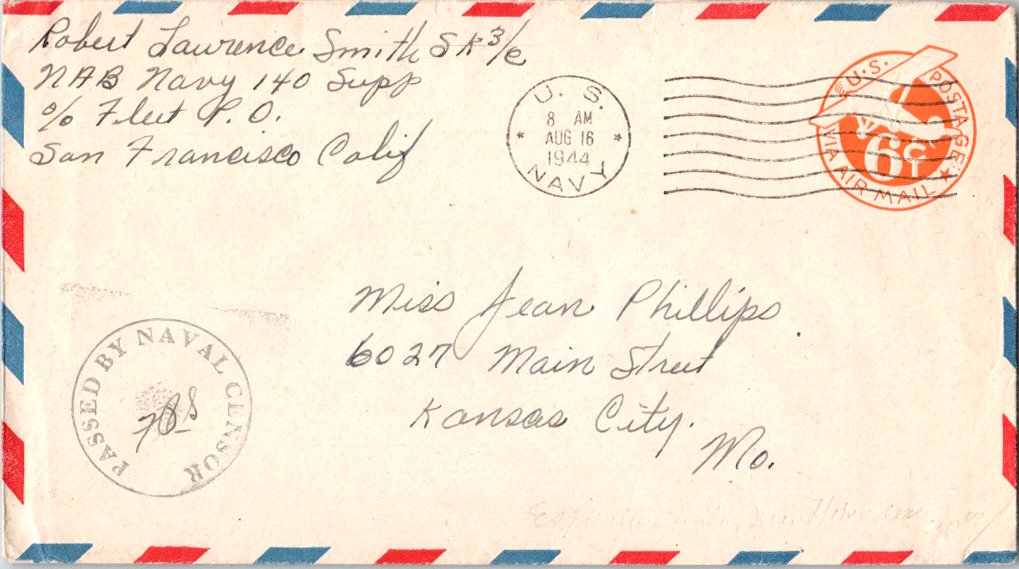 Robert Lawrence Smith SK 3/c
NAB Navy 140 Supp
c/o Fleet P.O.
San Francisco Calif
U. S.
8 AM
AUG 16
1944
NAVY
U.S. POSTAGE
6¢
VIA AIR MAIL
Miss Jean Phillips
6027 Main Street
Kansas City.
Mo.
PASSED BY NAVAL CENSOR